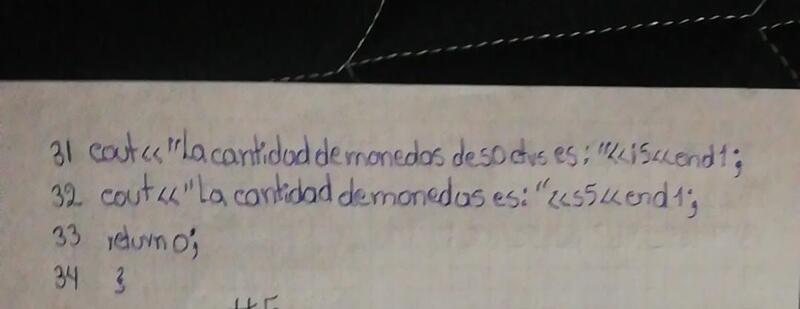 31 cout<<"La cantidad de monedas de 50 ctvs es: "<<i5<<end1;
32 cout<<"La cantidad de monedas es: "<<s5<<end1;
33 return 0;
34 }